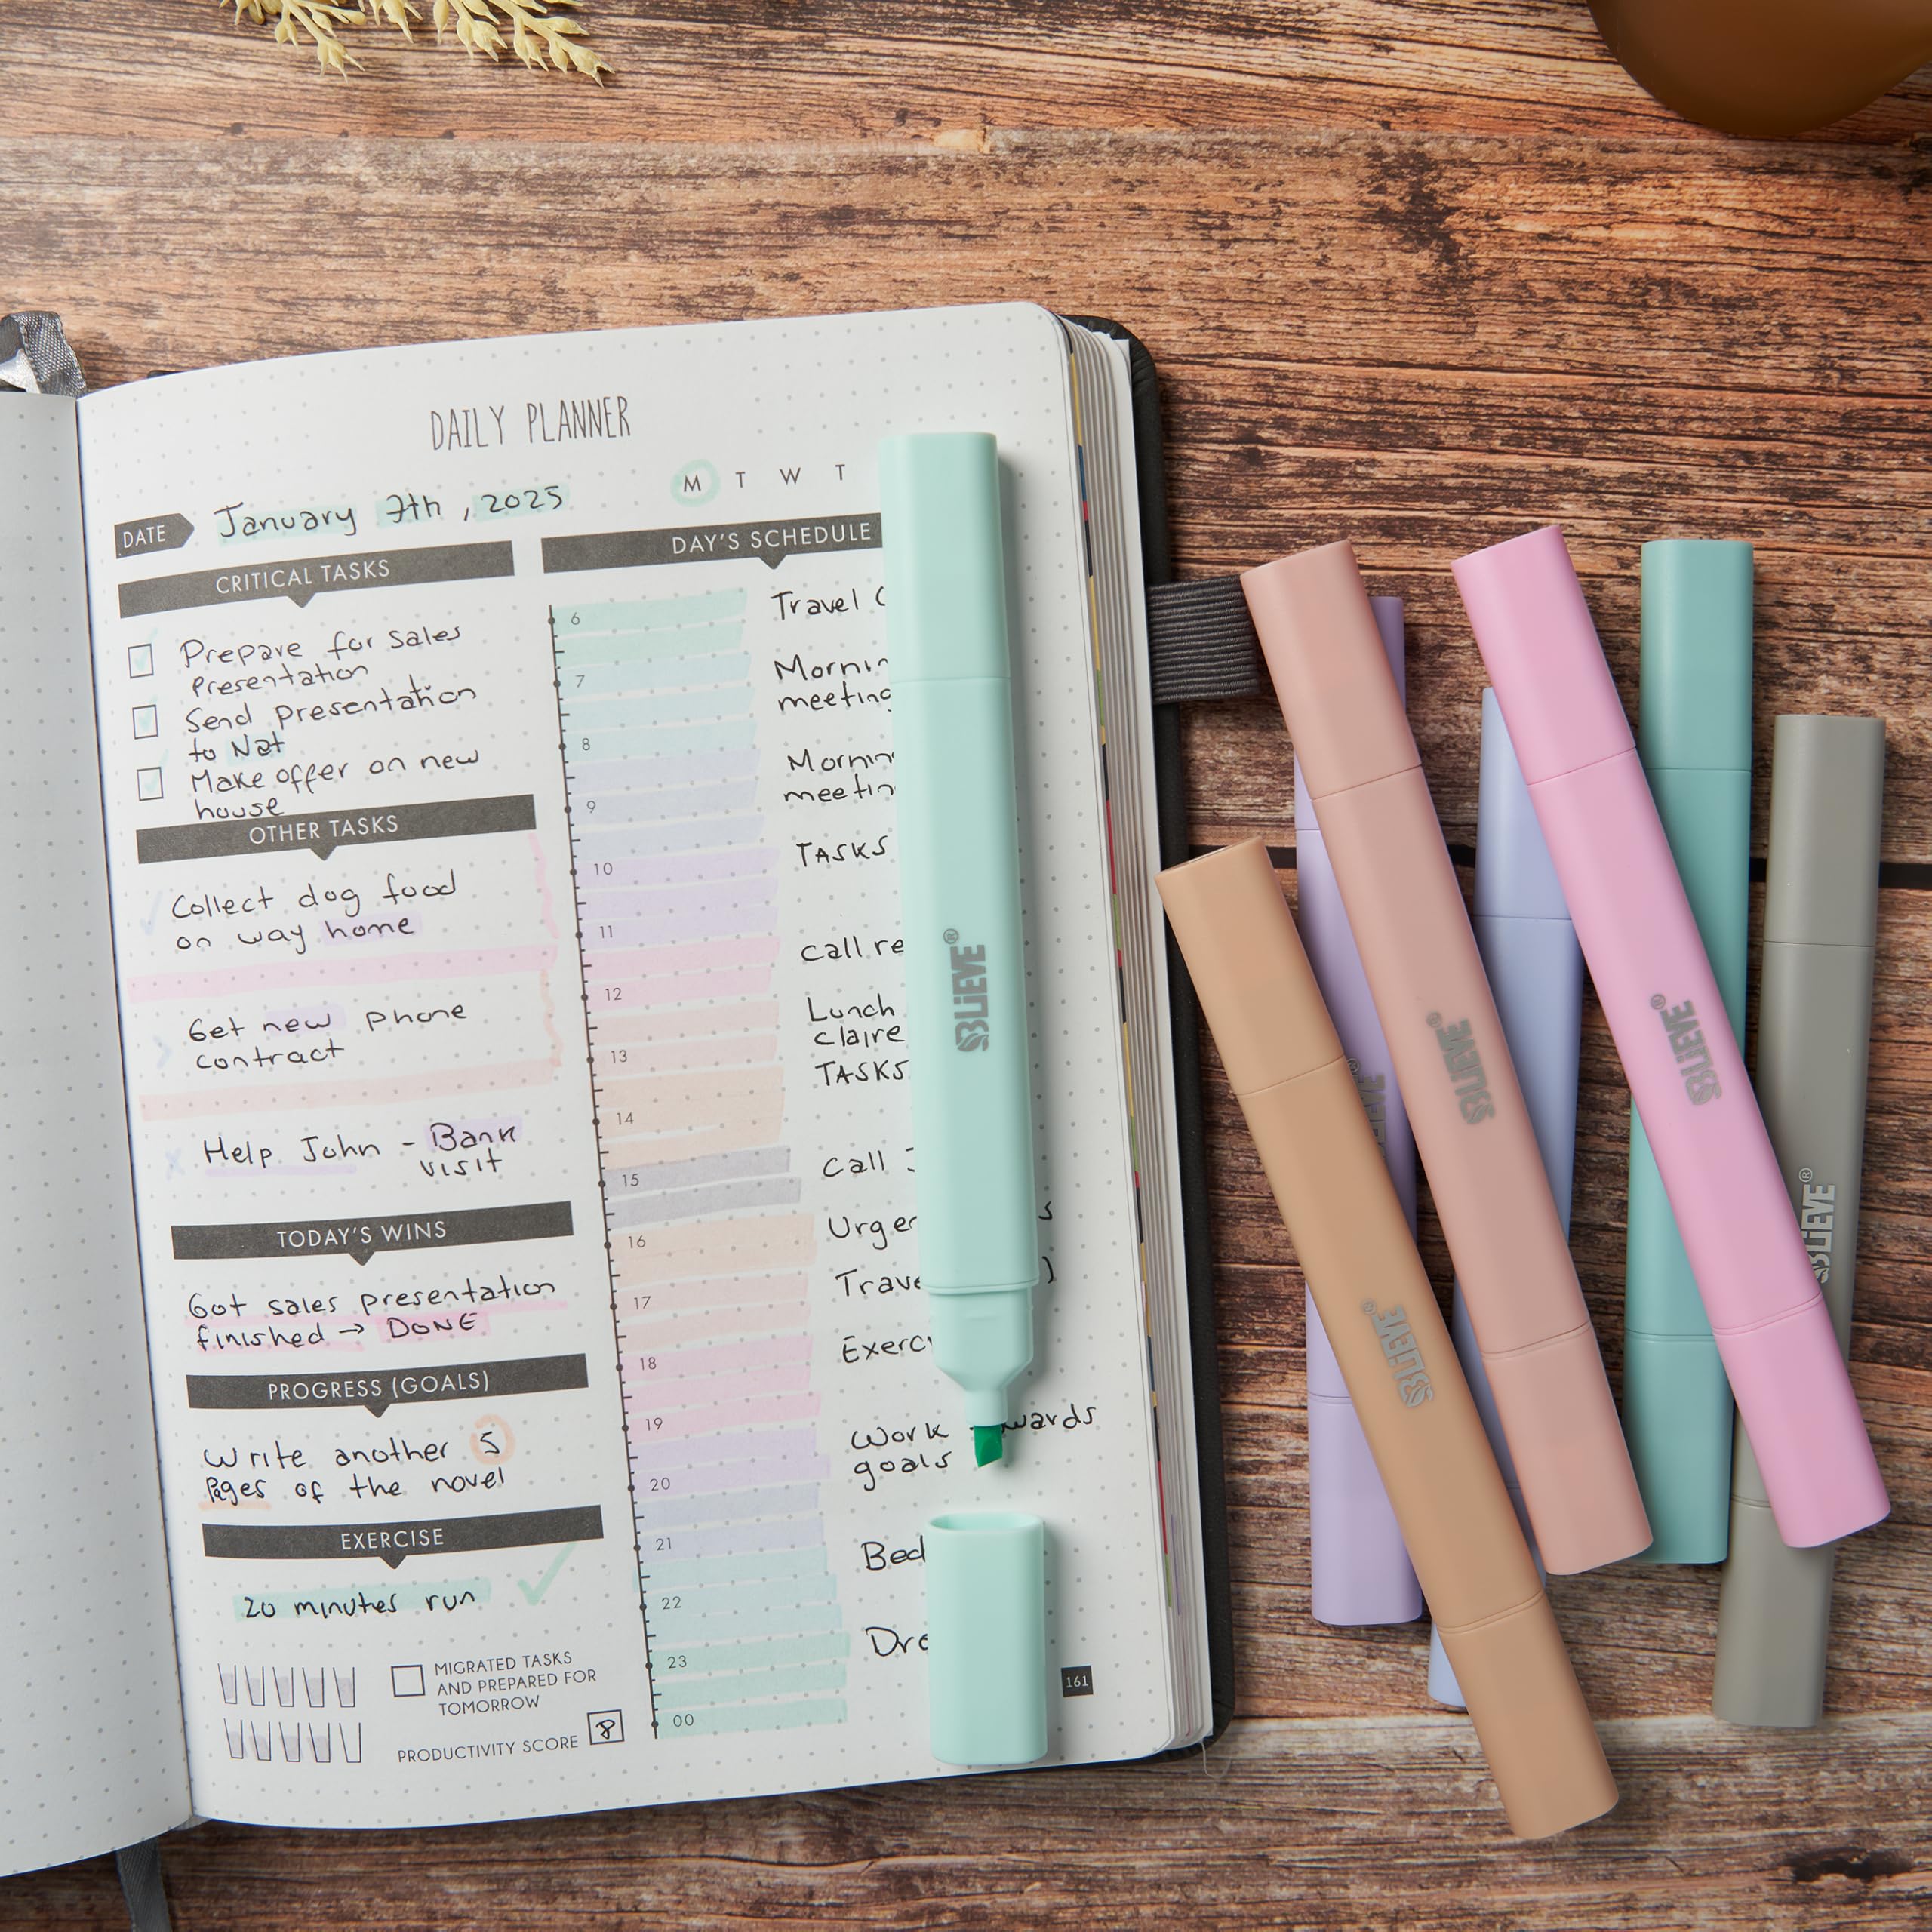 DAILY PLANNER
DATE January 7th, 2025
M T W T
CRITICAL TASKS
Prepare for sales
Presentation
Send presentation
to Nat
Make offer on new
house
OTHER TASKS
Collect dog food
on way home
Get new phone
contract
Help John - Bank
visit
TODAY'S WINS
Got sales presentation
finished → DONE
PROGRESS (GOALS)
Write another 5
Pages of the novel
EXERCISE
20 minutes run
MIGRATED TASKS
AND PREPARED FOR
TOMORROW
PRODUCTIVITY SCORE 8
DAY'S SCHEDULE
6
7
8
9
10
11
12
13
14
15
16
17
18
19
20
21
22
23
00
Travel
meeting
TASKS
Call
Lunch
Claire
TASKS
Call
Work
goals
161
BLiEVE®
BLiEVE®
BLiEVE®
BLiEVE®
BLiEVE®